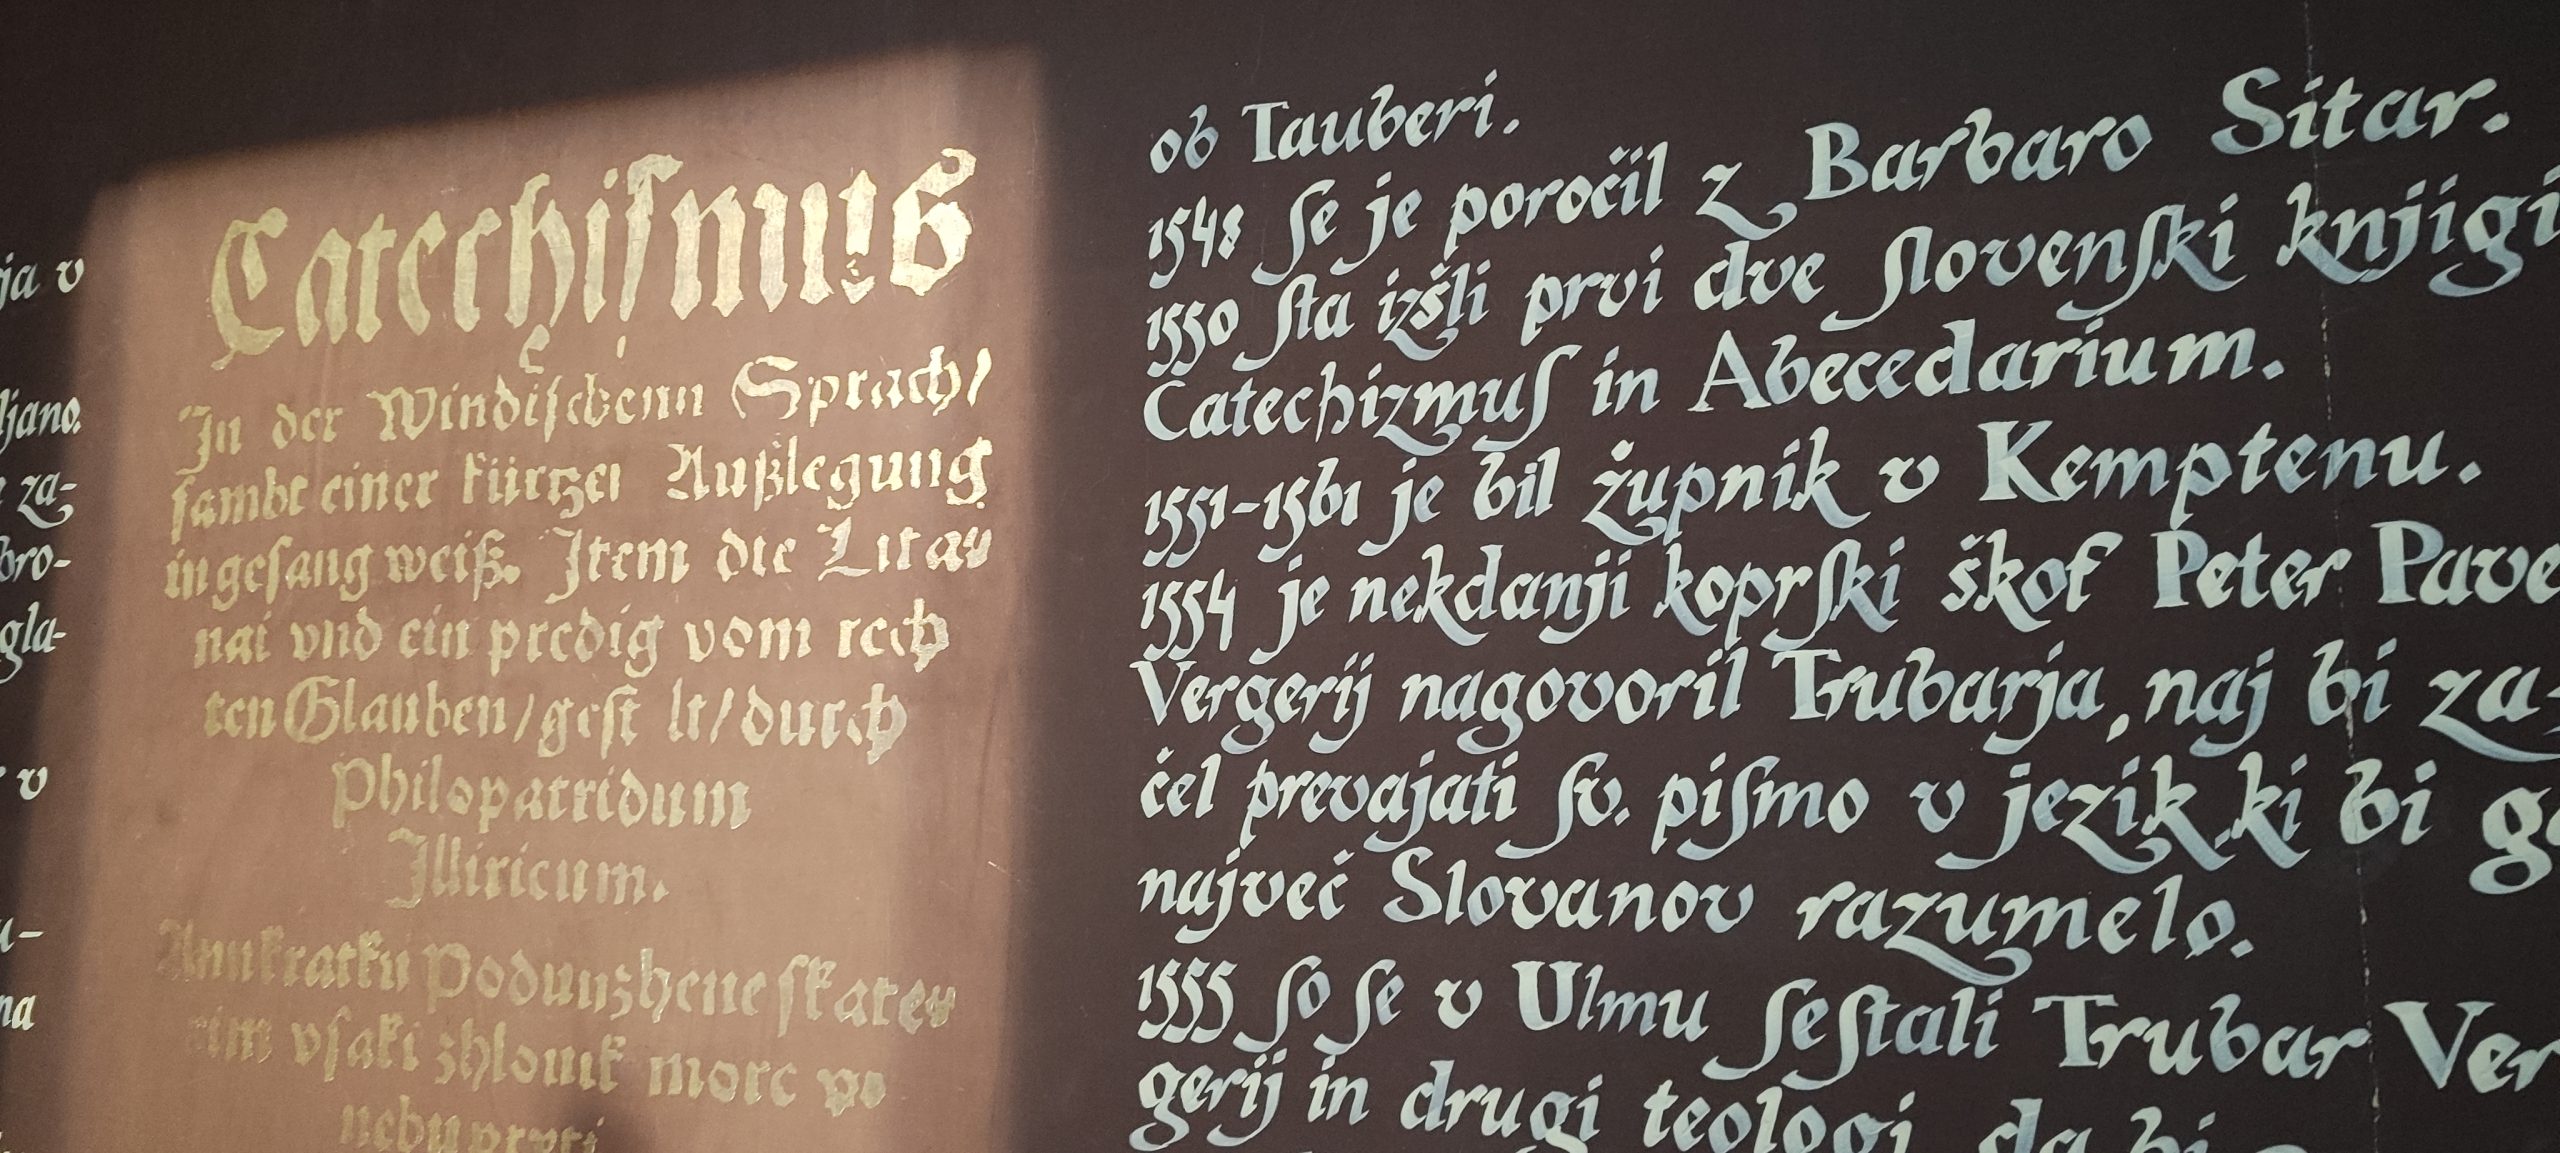 ja v
ljano.
za-
bro-
gla-
v
u-
na
Catechiſmus
In der Windiſchenn Sprach/
ſambt einer kürtzen Außlegung
in geſang weiß. Item die Litay
nai vnd ein predig vom rech
ten Glauben/geſt lt/durch
Philopatridum
Illiricum.
Anu kratku Poduuzhene ſkater
rim vſaki zhlouik more po
nebu pryti
ob Tauberi.
1548 ſe je poročil z Barbaro Sitar.
1550 ſta izšli prvi dve ſlovenſki knjigi
Catechizmuſ in Abecedarium.
1551-1561 je bil župnik v Kemptenu.
1554 je nekdanji koprſki škof Peter Pave
Vergerij nagovoril Trubarja, naj bi za-
čel prevajati ſv. piſmo v jezik, ki bi go
največ Slovanov razumelo.
1555 ſo ſe v Ulmu ſeſtali Trubar Ver
gerij in drugi teologi, da bi